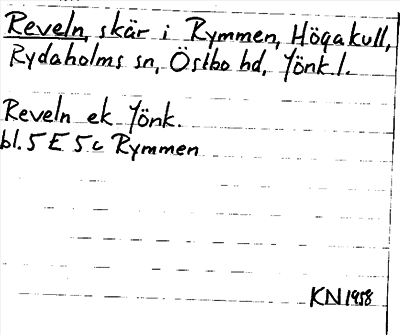 Reveln, skär i Rymmen, Högakull,
Rydaholms sn, Östbo hd, Jönk.l.
Reveln ek Jönk.
bl. 5 E 5 c Rymmen
KN 1958